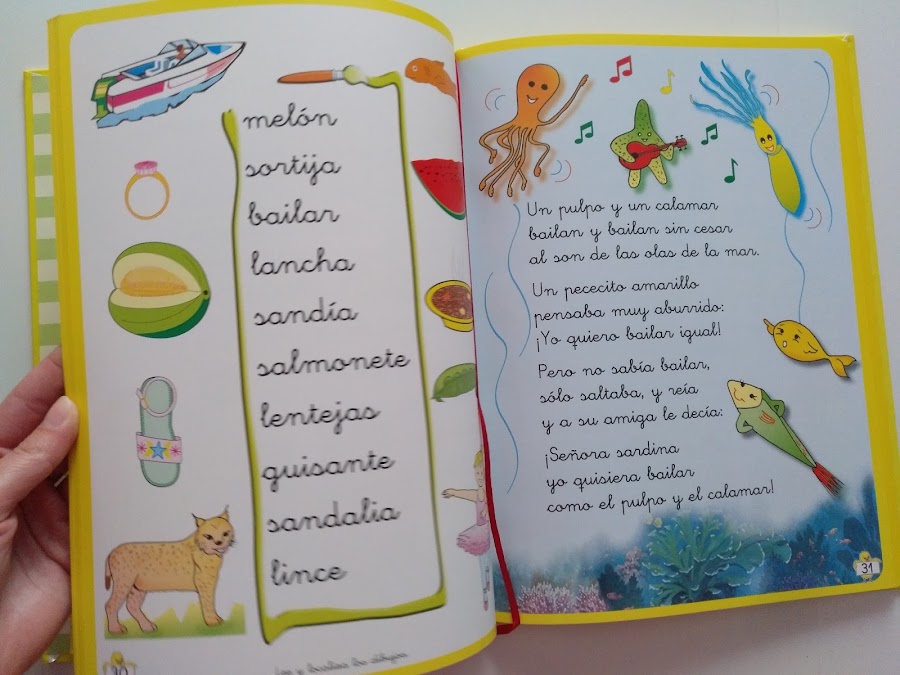 melón
sortija
bailar
lancha
sandía
salmonete
lentejas
guisante
sandalia
lince
Lee y localiza los dibujos.
30
Un pulpo y un calamar
bailan y bailan sin cesar
al son de las olas de la mar.
Un pececito amarillo
pensaba muy aburrido:
¡Yo quiero bailar igual!
Pero no sabía bailar,
sólo saltaba, y reía
y a su amiga le decía:
¡Señora sardina
yo quisiera bailar
como el pulpo y el calamar!
31